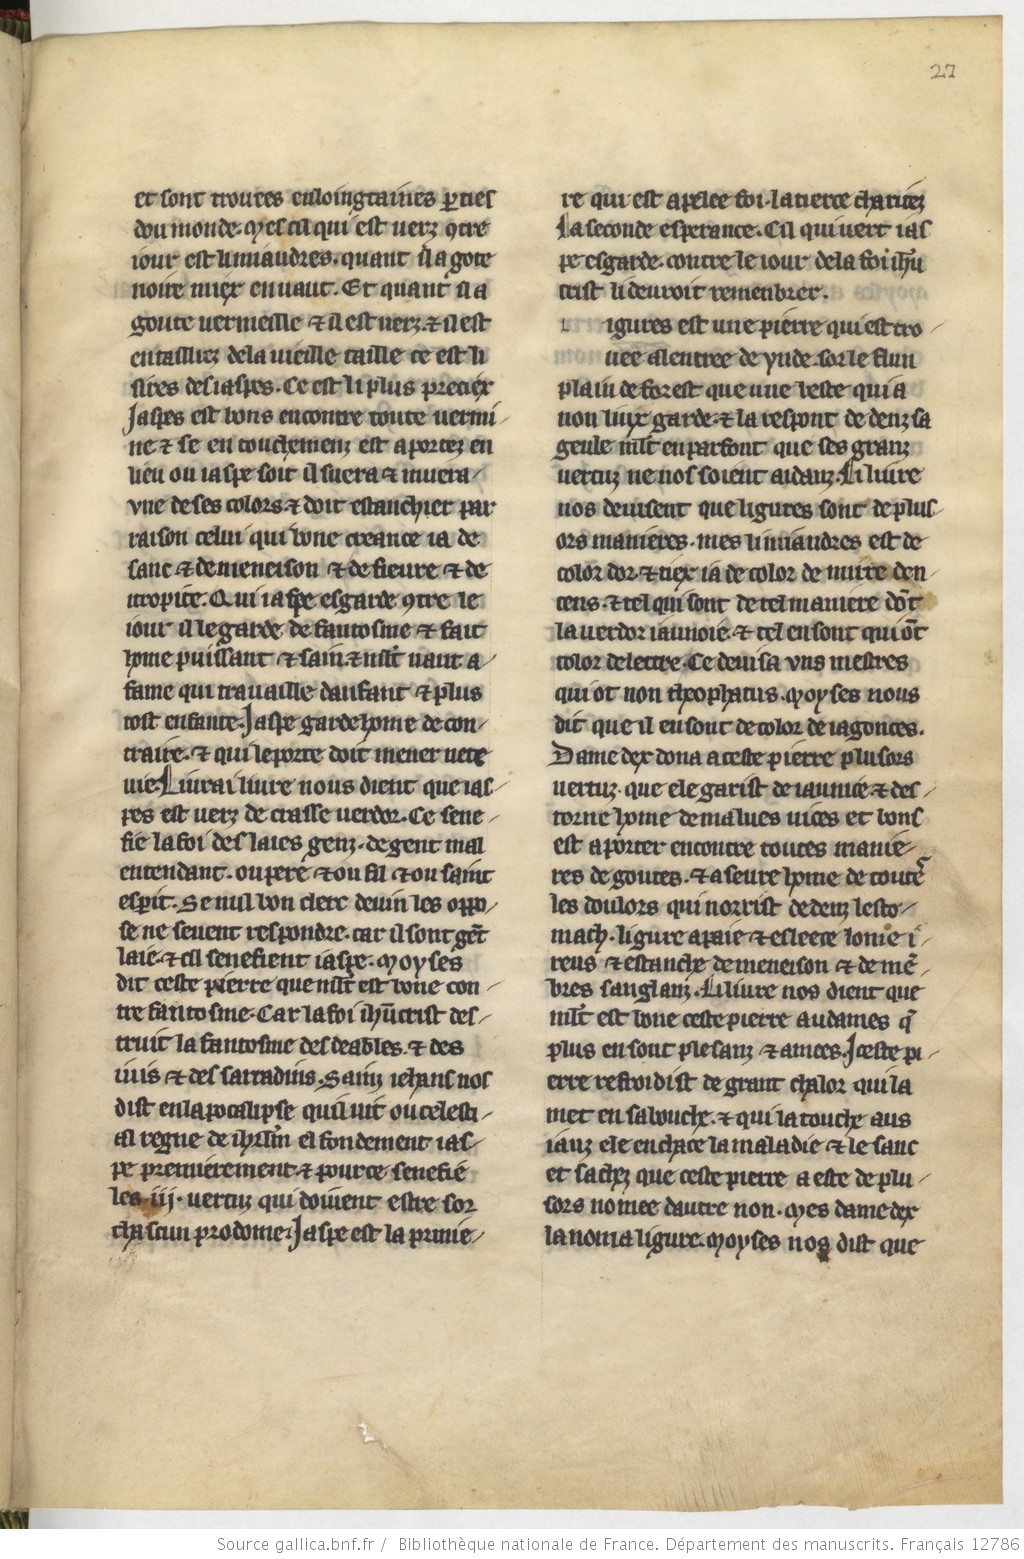 27
et sont trouees enloingtaines ꝑties
dou monde. Mes cil qui est uerz ꝯtre
iour est limiaudres. quant il a gote
noire miex enuaut. Et quant il a
goute uermeille ⁊ il est uerz. ⁊ il est
entailliez dela uieille taille ce est li
sires des iaspes. Ce est li plus preciex
Jaspes est bons encontre toute uermi-
ne ⁊ se en touchemenz est aportez en
lieu ou iaspe soit il suera ⁊ muera-
vne de ses colors. ⁊ doit estanchier par
raison celui qui bone creance i a de
sanc. ⁊ de meneison ⁊ de fieure ⁊ de
itropite. Qui iaspe esgarde ꝯtre le
iour il le garde de fantosme ⁊ fait
home puissant ⁊ sain. ⁊ mlt̄ uaut a-
fame qui trauaille danfant ⁊ plus
tost enfante. Jaspe garde home de con-
traire. ⁊ qui le porte doit mener nete
uie. Li urai liure nous dient que ias-
pes est uerz de crasse uerdor. Ce sene-
fie la foi des laies genz. de gent mal
entendant. ou pere ⁊ ou fil ⁊ ou saint
esp̄it. Se nul bon clerc deuin les oppo-
se ne seuent respondre. car il sont gēt
laie. ⁊ cil senefient iaspe. Moyses
dit ceste pierre que mlt̄ est bone con-
tre fantosme. Car la foi ih̄ucrist des-
truit la fantosme des deables. ⁊ des
iuis ⁊ des sarradins. Sainz iehans nos
dist en lapocalipse quil uit ou celesti-
al regne de ih̄rlm̄ el fondement ias-
pe premierement ⁊ pource senefie
les .iij. uertuz qui doiuent estre sor
chascun prodome. Jaspe est la prim̄e-
re qui est apelee foi. la tierce charitez
La seconde esperance. Cil qui uert ias
pe esgarde. contre le iour de la foi ih̄u
crist li deuroit remenbrer.
l igures est une pierre qui est tro-
uee alentree de ynde. sor le flun
plain de forest que une beste qui a
non liux garde. ⁊ la respont dedenz sa
geule mlt̄ en parfont que ses granz
uertuz ne nos soient aidanz. Li liure
nos deuisent que ligures sont de plus-
ors manieres. mes li miaudres est de
color dor. ⁊ tiex i a de color de mirre den-
cens. ⁊ tel qui sont de tel maniere dōt
la uerdor iaunoie. ⁊ tel en sont qui ōt
color delettre. Ce deuisa vns mestres
qui ot non theophatus. Moyses nous
dit que il en sont de color de iagonces.
Dame dex dona a ceste pierre plusors
uertuz. que ele garist de iaunice ⁊ des-
torne home de malues uices et bons
est aporter encontre toutes manie-
res de goutes. ⁊ aseure home de toutes
les doulors qui norrist dedenz lesto-
mach. ligure apaie ⁊ esleece lome i-
reus ⁊ estanche de meneison ⁊ de mē-
bres sanglanz. Li liure nos dient que
mlt̄ est bone ceste pierre au dames q̄
plus en sont plesanz ⁊ amees. Iceste pi-
erre refroidist de grant chalor qui la
met en sa bouche. ⁊ qui la touche aus
iauz ele enchace la maladie ⁊ le sanc
et sachez que ceste pierre a este de plu-
sors nomee dautre non. Mes dame dex
la noma ligure. Moyses nos dist que
Source gallica.bnf.fr / Bibliothèque nationale de France. Département des manuscrits. Français 12786